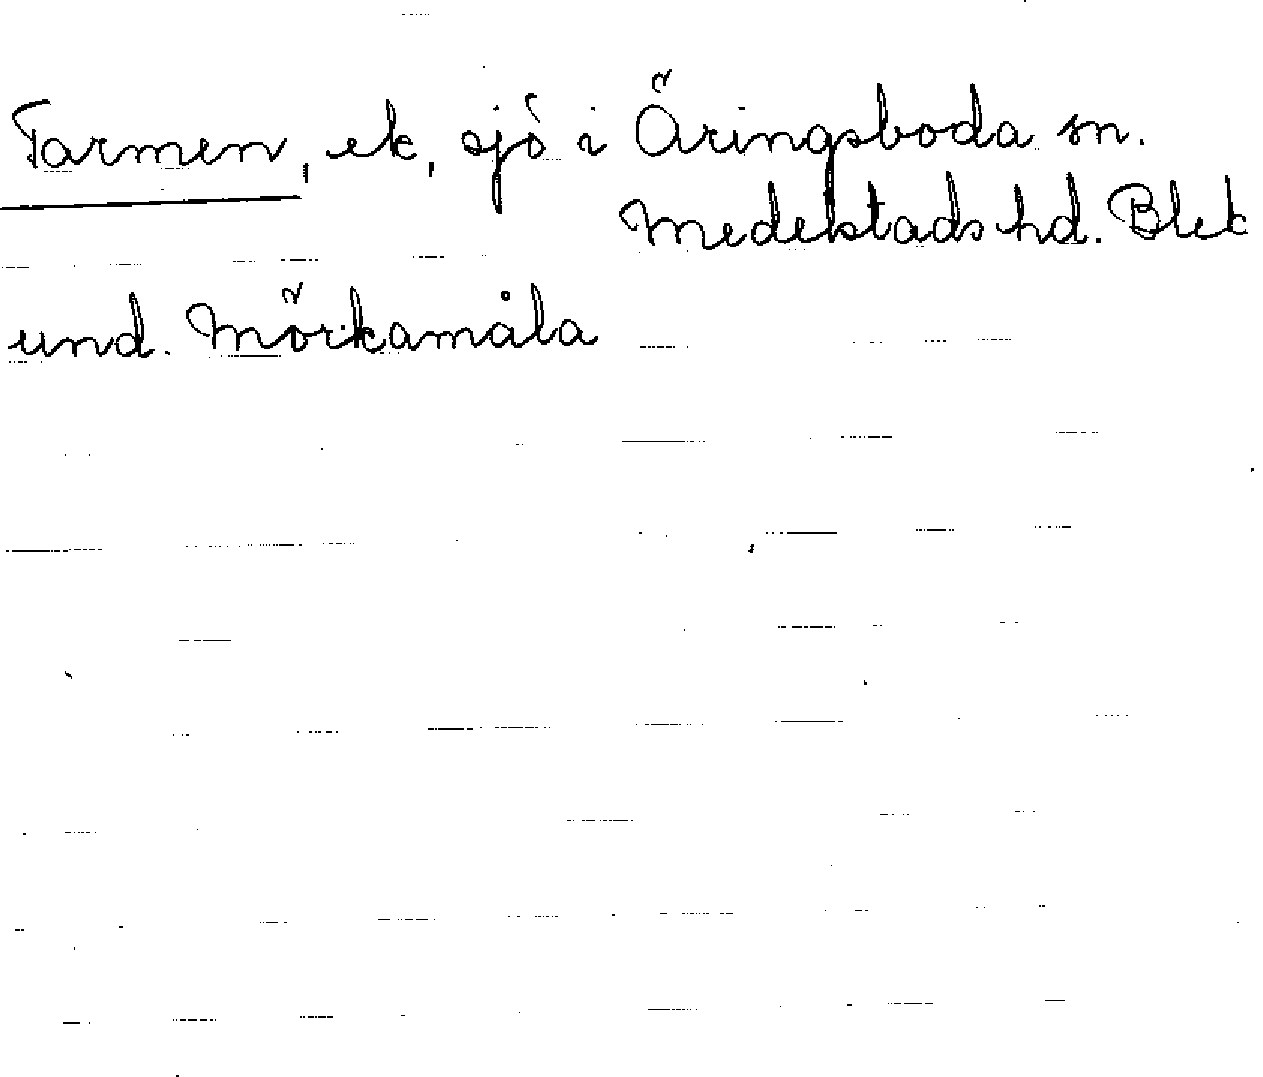 Tarmen, ek, sjö i Öringsboda sn.
Medelstads hd. Blek
und. Mörkamåla